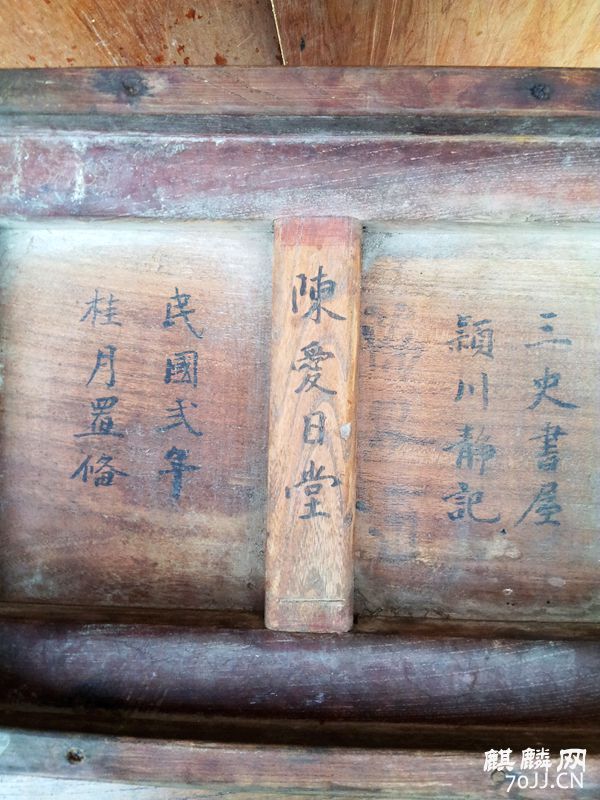 三史書屋
潁川靜記
陳愛日堂
民國弍年
桂月置俻
麒麟网
70JJ.CN